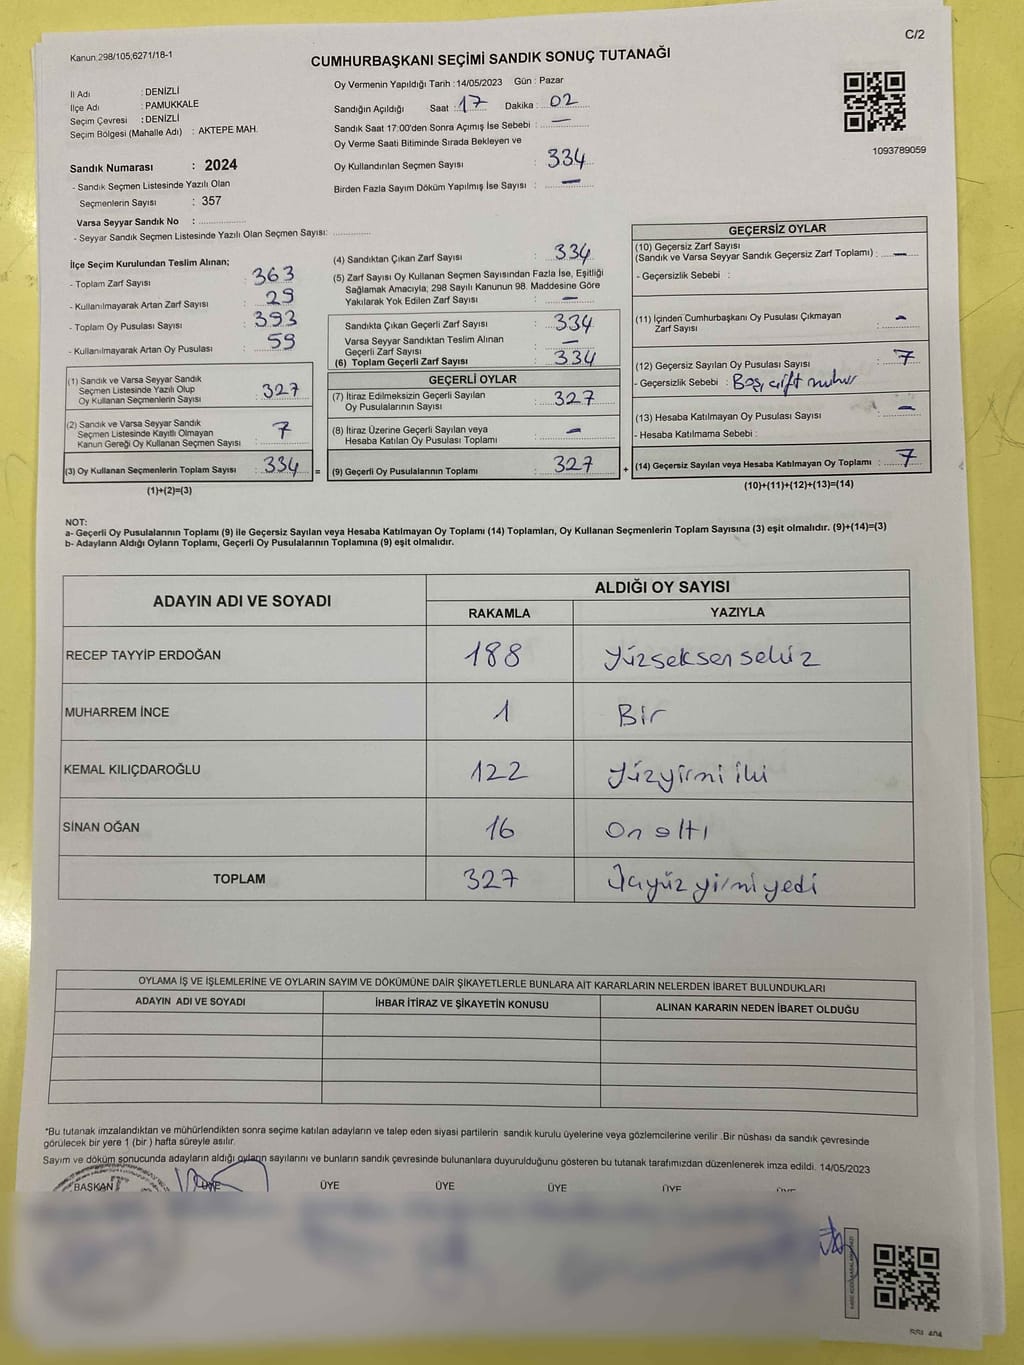 C/2
Kanun.298/105,6271/18-1
CUMHURBAŞKANI SEÇİMİ SANDIK SONUÇ TUTANAĞI
İl Adı : DENİZLİ
İlçe Adı : PAMUKKALE
Seçim Çevresi : DENİZLİ
Seçim Bölgesi (Mahalle Adı) : AKTEPE MAH.
Sandık Numarası : 2024
- Sandık Seçmen Listesinde Yazılı Olan
Seçmenlerin Sayısı : 357
Varsa Seyyar Sandık No :
- Seyyar Sandık Seçmen Listesinde Yazılı Olan Seçmen Sayısı:
Oy Vermenin Yapıldığı Tarih :14/05/2023 Gün : Pazar
Sandığın Açıldığı Saat : 17 Dakika : 02
Sandık Saat 17:00'den Sonra Açımış İse Sebebi : —
Oy Verme Saati Bitiminde Sırada Bekleyen ve
Oy Kullandırılan Seçmen Sayısı : 334
Birden Fazla Sayım Döküm Yapılmış İse Sayısı : —
1093789059
İlçe Seçim Kurulundan Teslim Alınan;
- Toplam Zarf Sayısı : 363
- Kullanılmayarak Artan Zarf Sayısı : 29
- Toplam Oy Pusulası Sayısı : 393
- Kullanılmayarak Artan Oy Pusulası : 59
(1) Sandık ve Varsa Seyyar Sandık
Seçmen Listesinde Yazılı Olup
Oy Kullanan Seçmenlerin Sayısı : 327
(2) Sandık ve Varsa Seyyar Sandık
Seçmen Listesinde Kayıtlı Olmayan
Kanun Gereği Oy Kullanan Seçmen Sayısı : 7
(3) Oy Kullanan Seçmenlerin Toplam Sayısı : 334 =
(1)+(2)=(3)
(4) Sandıktan Çıkan Zarf Sayısı : 334
(5) Zarf Sayısı Oy Kullanan Seçmen Sayısından Fazla İse, Eşitliği
Sağlamak Amacıyla; 298 Sayılı Kanunun 98. Maddesine Göre
Yakılarak Yok Edilen Zarf Sayısı : —
Sandıkta Çıkan Geçerli Zarf Sayısı : 334
Varsa Seyyar Sandıktan Teslim Alınan
Geçerli Zarf Sayısı : —
(6) Toplam Geçerli Zarf Sayısı : 334
GEÇERLİ OYLAR
(7) İtiraz Edilmeksizin Geçerli Sayılan
Oy Pusulalarının Sayısı : 327
(8) İtiraz Üzerine Geçerli Sayılan veya
Hesaba Katılan Oy Pusulası Toplamı : —
(9) Geçerli Oy Pusulalarının Toplamı : 327 +
GEÇERSİZ OYLAR
(10) Geçersiz Zarf Sayısı
(Sandık ve Varsa Seyyar Sandık Geçersiz Zarf Toplamı) : —
- Geçersizlik Sebebi :
(11) İçinden Cumhurbaşkanı Oy Pusulası Çıkmayan
Zarf Sayısı : —
(12) Geçersiz Sayılan Oy Pusulası Sayısı : 7
- Geçersizlik Sebebi : Boş, çift mühür
(13) Hesaba Katılmayan Oy Pusulası Sayısı : —
- Hesaba Katılmama Sebebi :
(14) Geçersiz Sayılan veya Hesaba Katılmayan Oy Toplamı : 7
(10)+(11)+(12)+(13)=(14)
NOT:
a- Geçerli Oy Pusulalarının Toplamı (9) ile Geçersiz Sayılan veya Hesaba Katılmayan Oy Toplamı (14) Toplamları, Oy Kullanan Seçmenlerin Toplam Sayısına (3) eşit olmalıdır. (9)+(14)=(3)
b- Adayların Aldığı Oyların Toplamı, Geçerli Oy Pusulalarının Toplamına (9) eşit olmalıdır.
ADAYIN ADI VE SOYADI
ALDIĞI OY SAYISI
RAKAMLA YAZIYLA
RECEP TAYYİP ERDOĞAN 188 Yüzseksen sekiz
MUHARREM İNCE 1 Bir
KEMAL KILIÇDAROĞLU 122 Yüzyirmi iki
SİNAN OĞAN 16 On altı
TOPLAM 327 Üçyüz yirmi yedi
OYLAMA İŞ VE İŞLEMLERİNE VE OYLARIN SAYIM VE DÖKÜMÜNE DAİR ŞİKAYETLERLE BUNLARA AİT KARARLARIN NELERDEN İBARET BULUNDUKLARI
ADAYIN ADI VE SOYADI İHBAR İTİRAZ VE ŞİKAYETİN KONUSU ALINAN KARARIN NEDEN İBARET OLDUĞU
*Bu tutanak imzalandıktan ve mühürlendikten sonra seçime katılan adayların ve talep eden siyasi partilerin sandık kurulu üyelerine veya gözlemcilerine verilir .Bir nüshası da sandık çevresinde
görülecek bir yere 1 (bir ) hafta süreyle asılır.
Sayım ve döküm sonucunda adayların aldığı oyların sayılarını ve bunların sandık çevresinde bulunanlara duyurulduğunu gösteren bu tutanak tarafımızdan düzenlenerek imza edildi. 14/05/2023
BAŞKAN ÜYE ÜYE ÜYE ÜYE ÜYE ÜYE